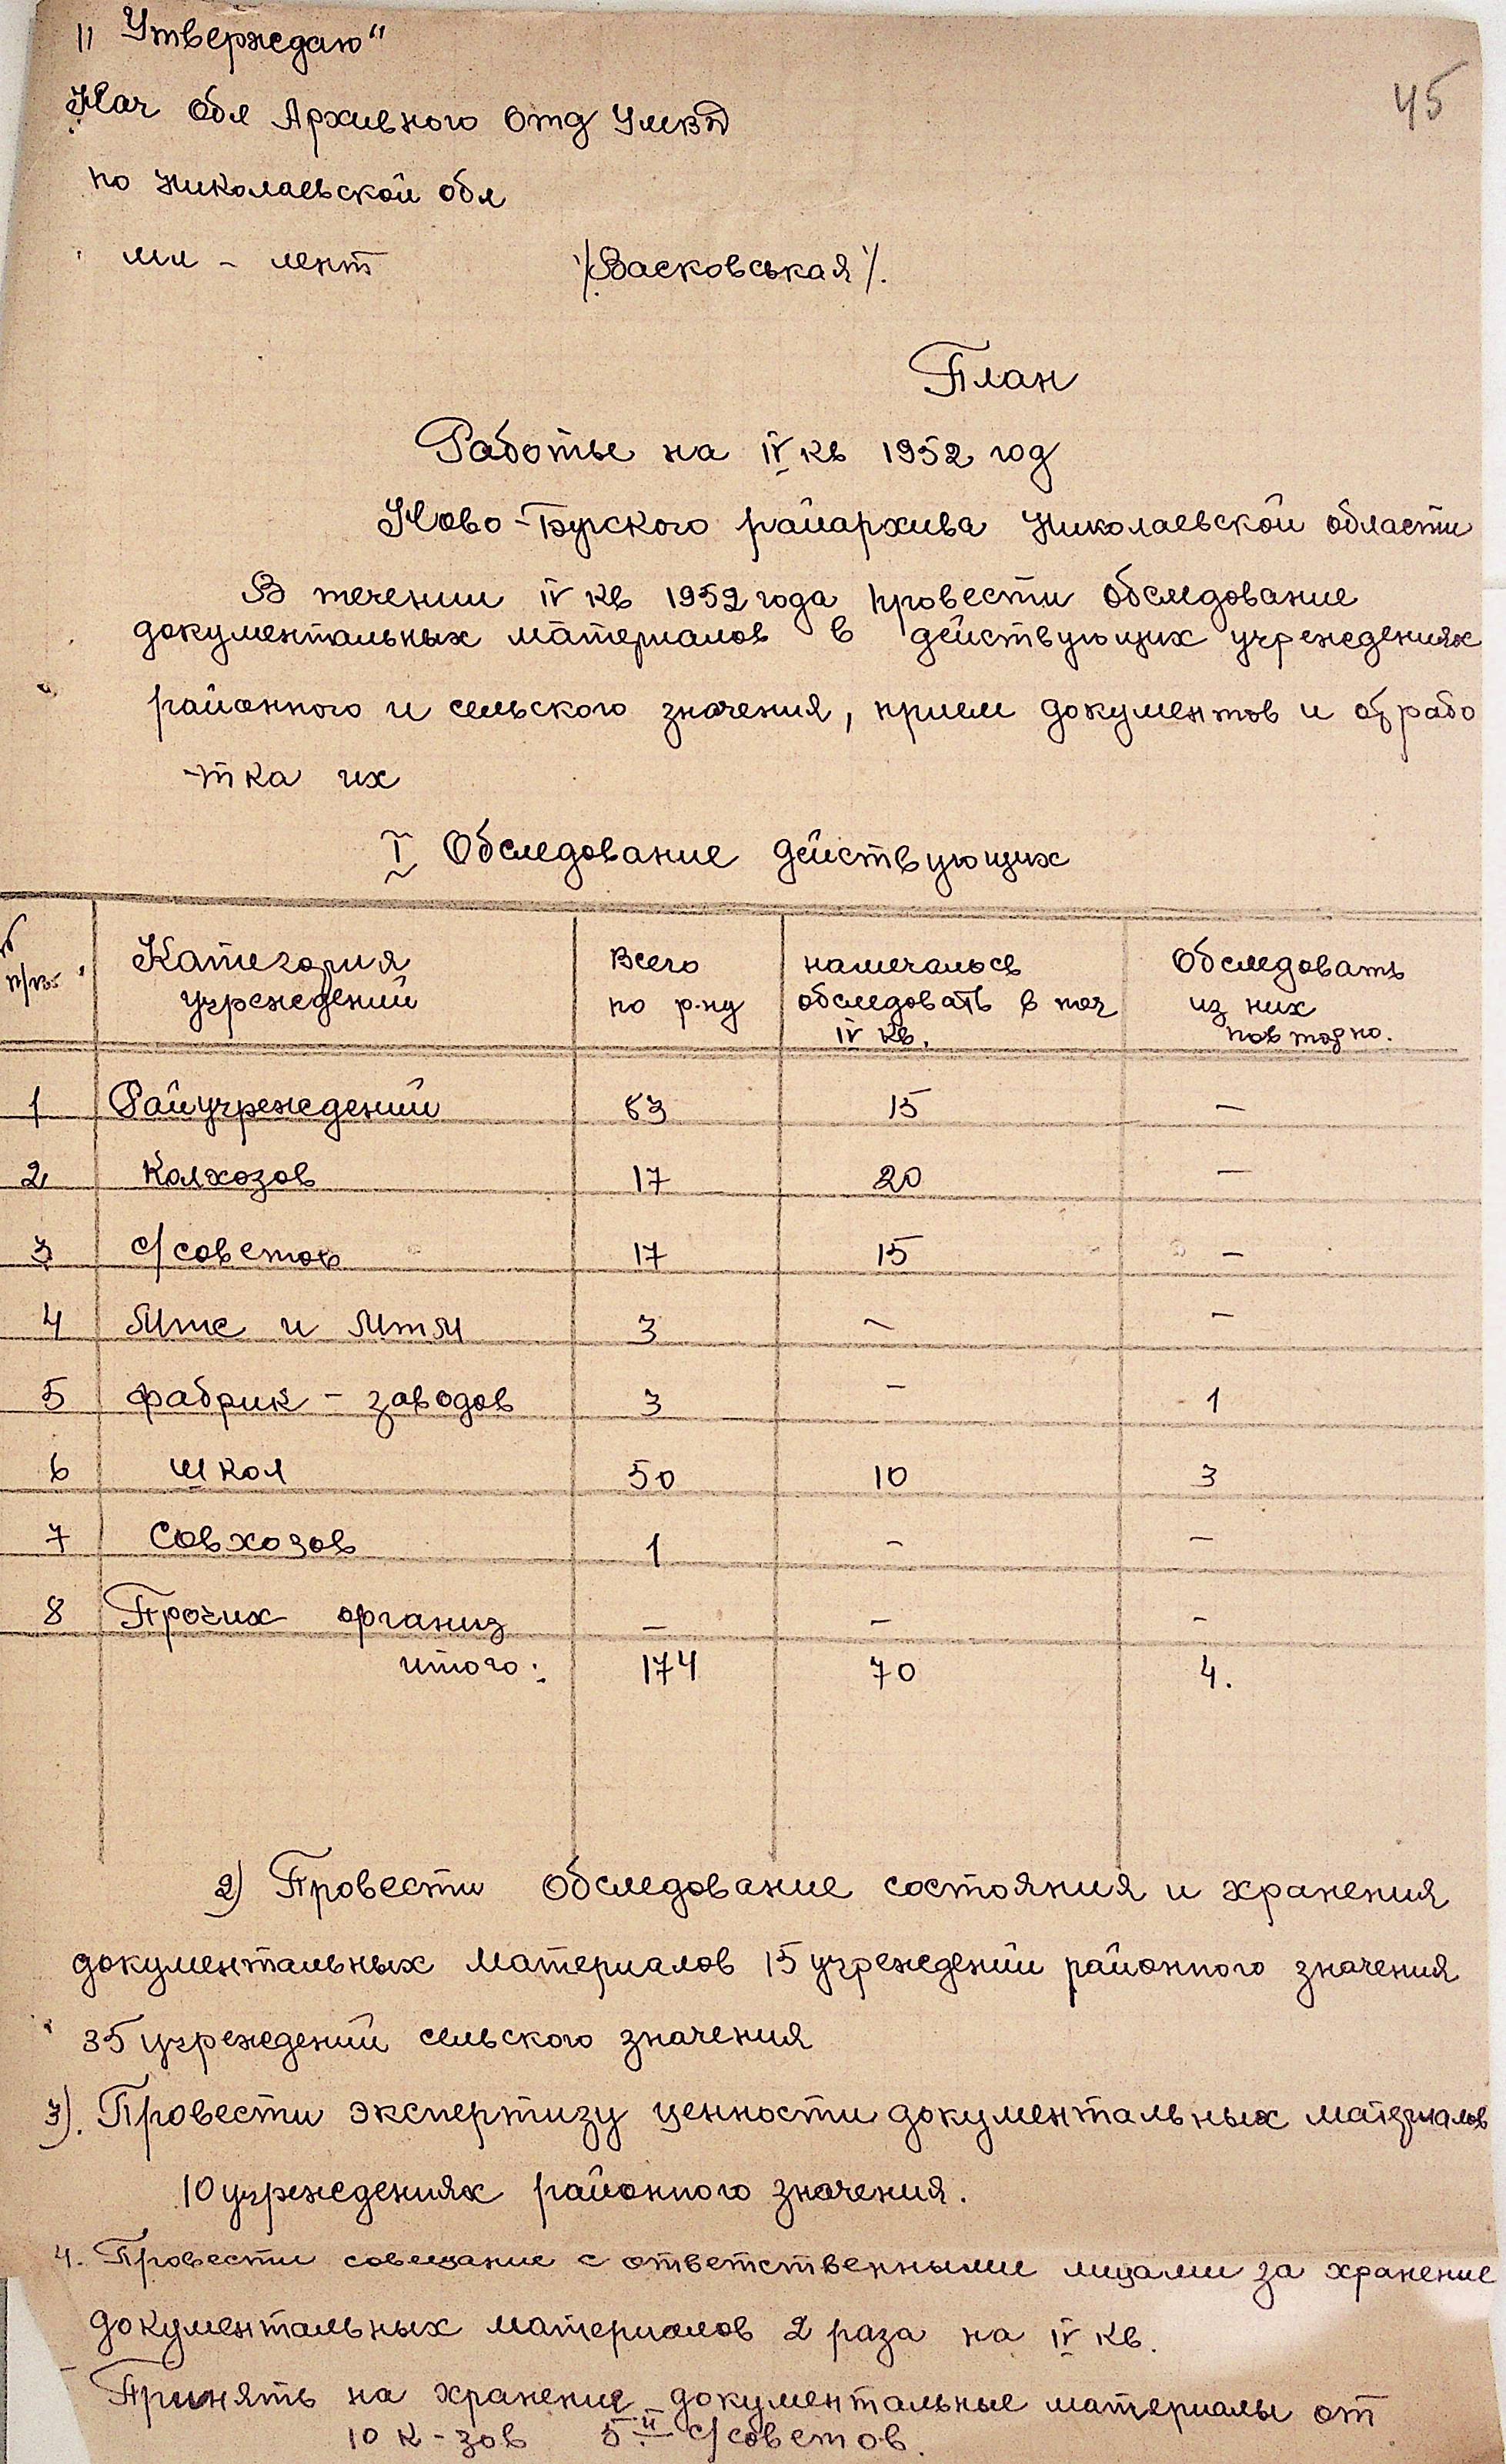 "Утверждаю"
45
Нач Обл Архивного Отд УМВД
по Николаевской обл
мл - лент /Васковськая/.
План
Работы на IV кв 1952 год
Ново-Бугского райархива Николаевской области
В течении IV кв 1952 года провести обследование
документальных материалов в действующих учреждениях
районного и сельского значения, прием документов и обрабо
-тка их
I Обследование действующих
№ п/п Категория учреждений Всего по р-ну намечалось обследовать в теч IV кв. Обследовать из них повторно.
1 Райучреждений 83 15 –
2 Колхозов 17 20 –
3 с/советов 17 15 –
4 Мтс и МтМ 3 – –
5 фабрик - заводов 3 – 1
6 школ 50 10 3
7 Совхозов 1 – –
8 Прочих организ – – –
итого: 174 70 4.
2) Провести Обследование состояния и хранения
документальных материалов 15 учреждений районного значения
35 учреждений сельского значения
3). Провести экспертизу ценности документальных материалов
10 учреждениях районного значения.
4. Провести совещание с ответственными лицами за хранение
документальных материалов 2 раза на IV кв.
Принять на хранение документальные материалы от
10 к-зов 5й с/советов.